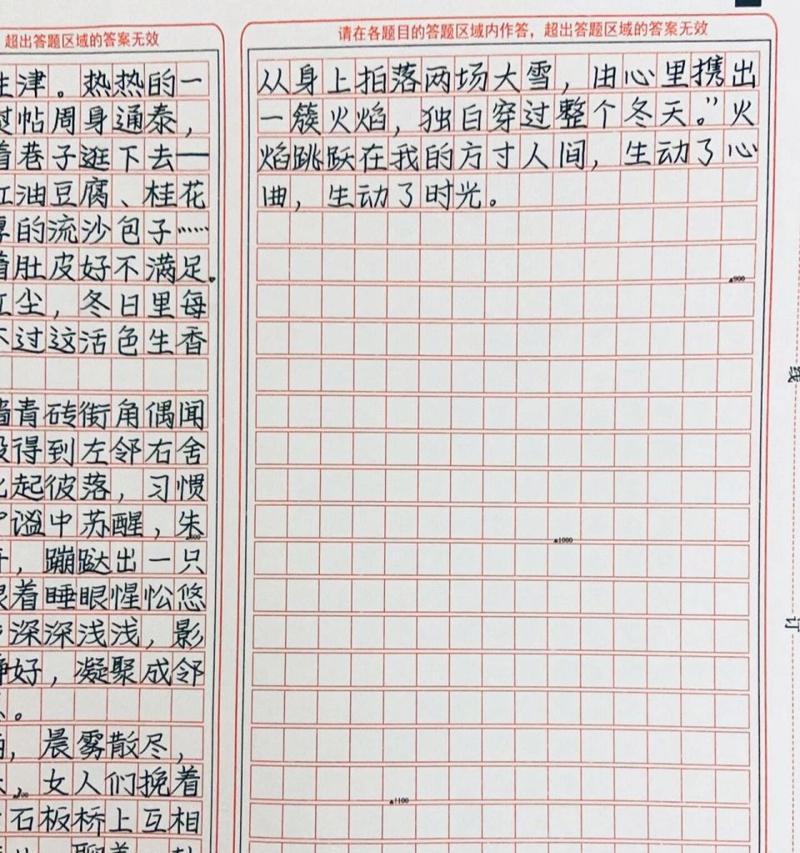 超出答题区域的答案无效
生津。热热的一
熨帖周身通泰，
着巷子逛下去——
红油豆腐、桂花
厚的流沙包子……
着肚皮好不满足。
红尘，冬日里每
不过这活色生香
墙青砖街角偶闻
得到左邻右舍
起彼落，习惯
谧中苏醒，朱
，蹦跶出一只
眼着睡眼惺忪悠
深深浅浅，影
静好，凝聚成邻
。
，晨雾散尽，
。女人们挽着
石板桥上互相
请在各题目的答题区域内作答，超出答题区域的答案无效
从身上拍落两场大雪，由心里携出
一簇火焰，独自穿过整个冬天。”火
焰跳跃在我的方寸人间，生动了心
曲，生动了时光。
▲900
▲1000
▲1100
线
订